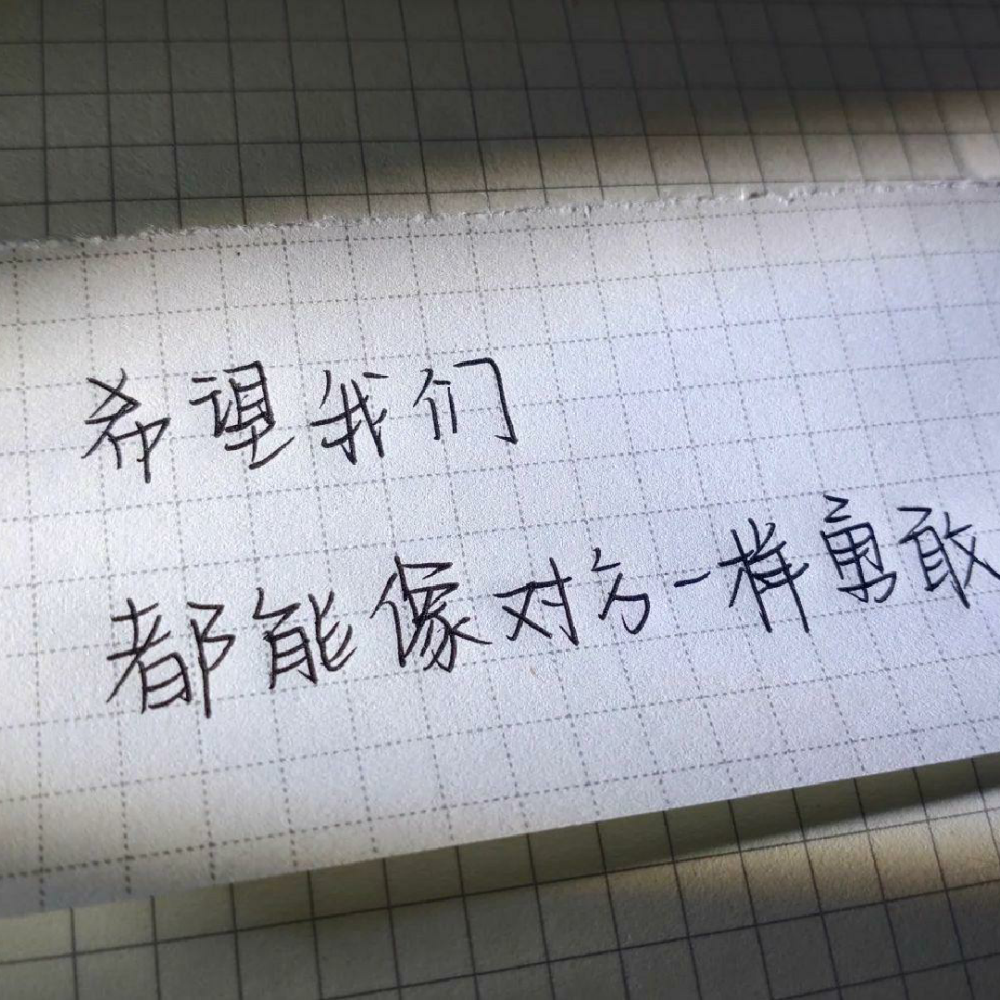 希望我们
都能像对方一样勇敢